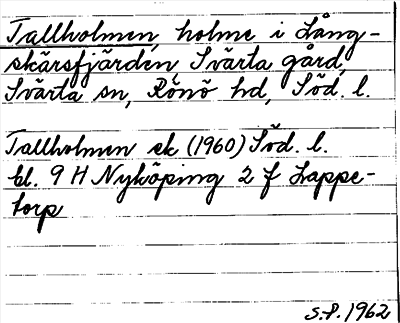 Tallholmen, holme i Lång-
skärsfjärden, Svärta gård,
Svärta sn, Rönö hd, Söd. l.
Tallholmen ek (1960) Söd. l.
bl. 9 H Nyköping 2 f Lappe-
torp
S.P. 1962